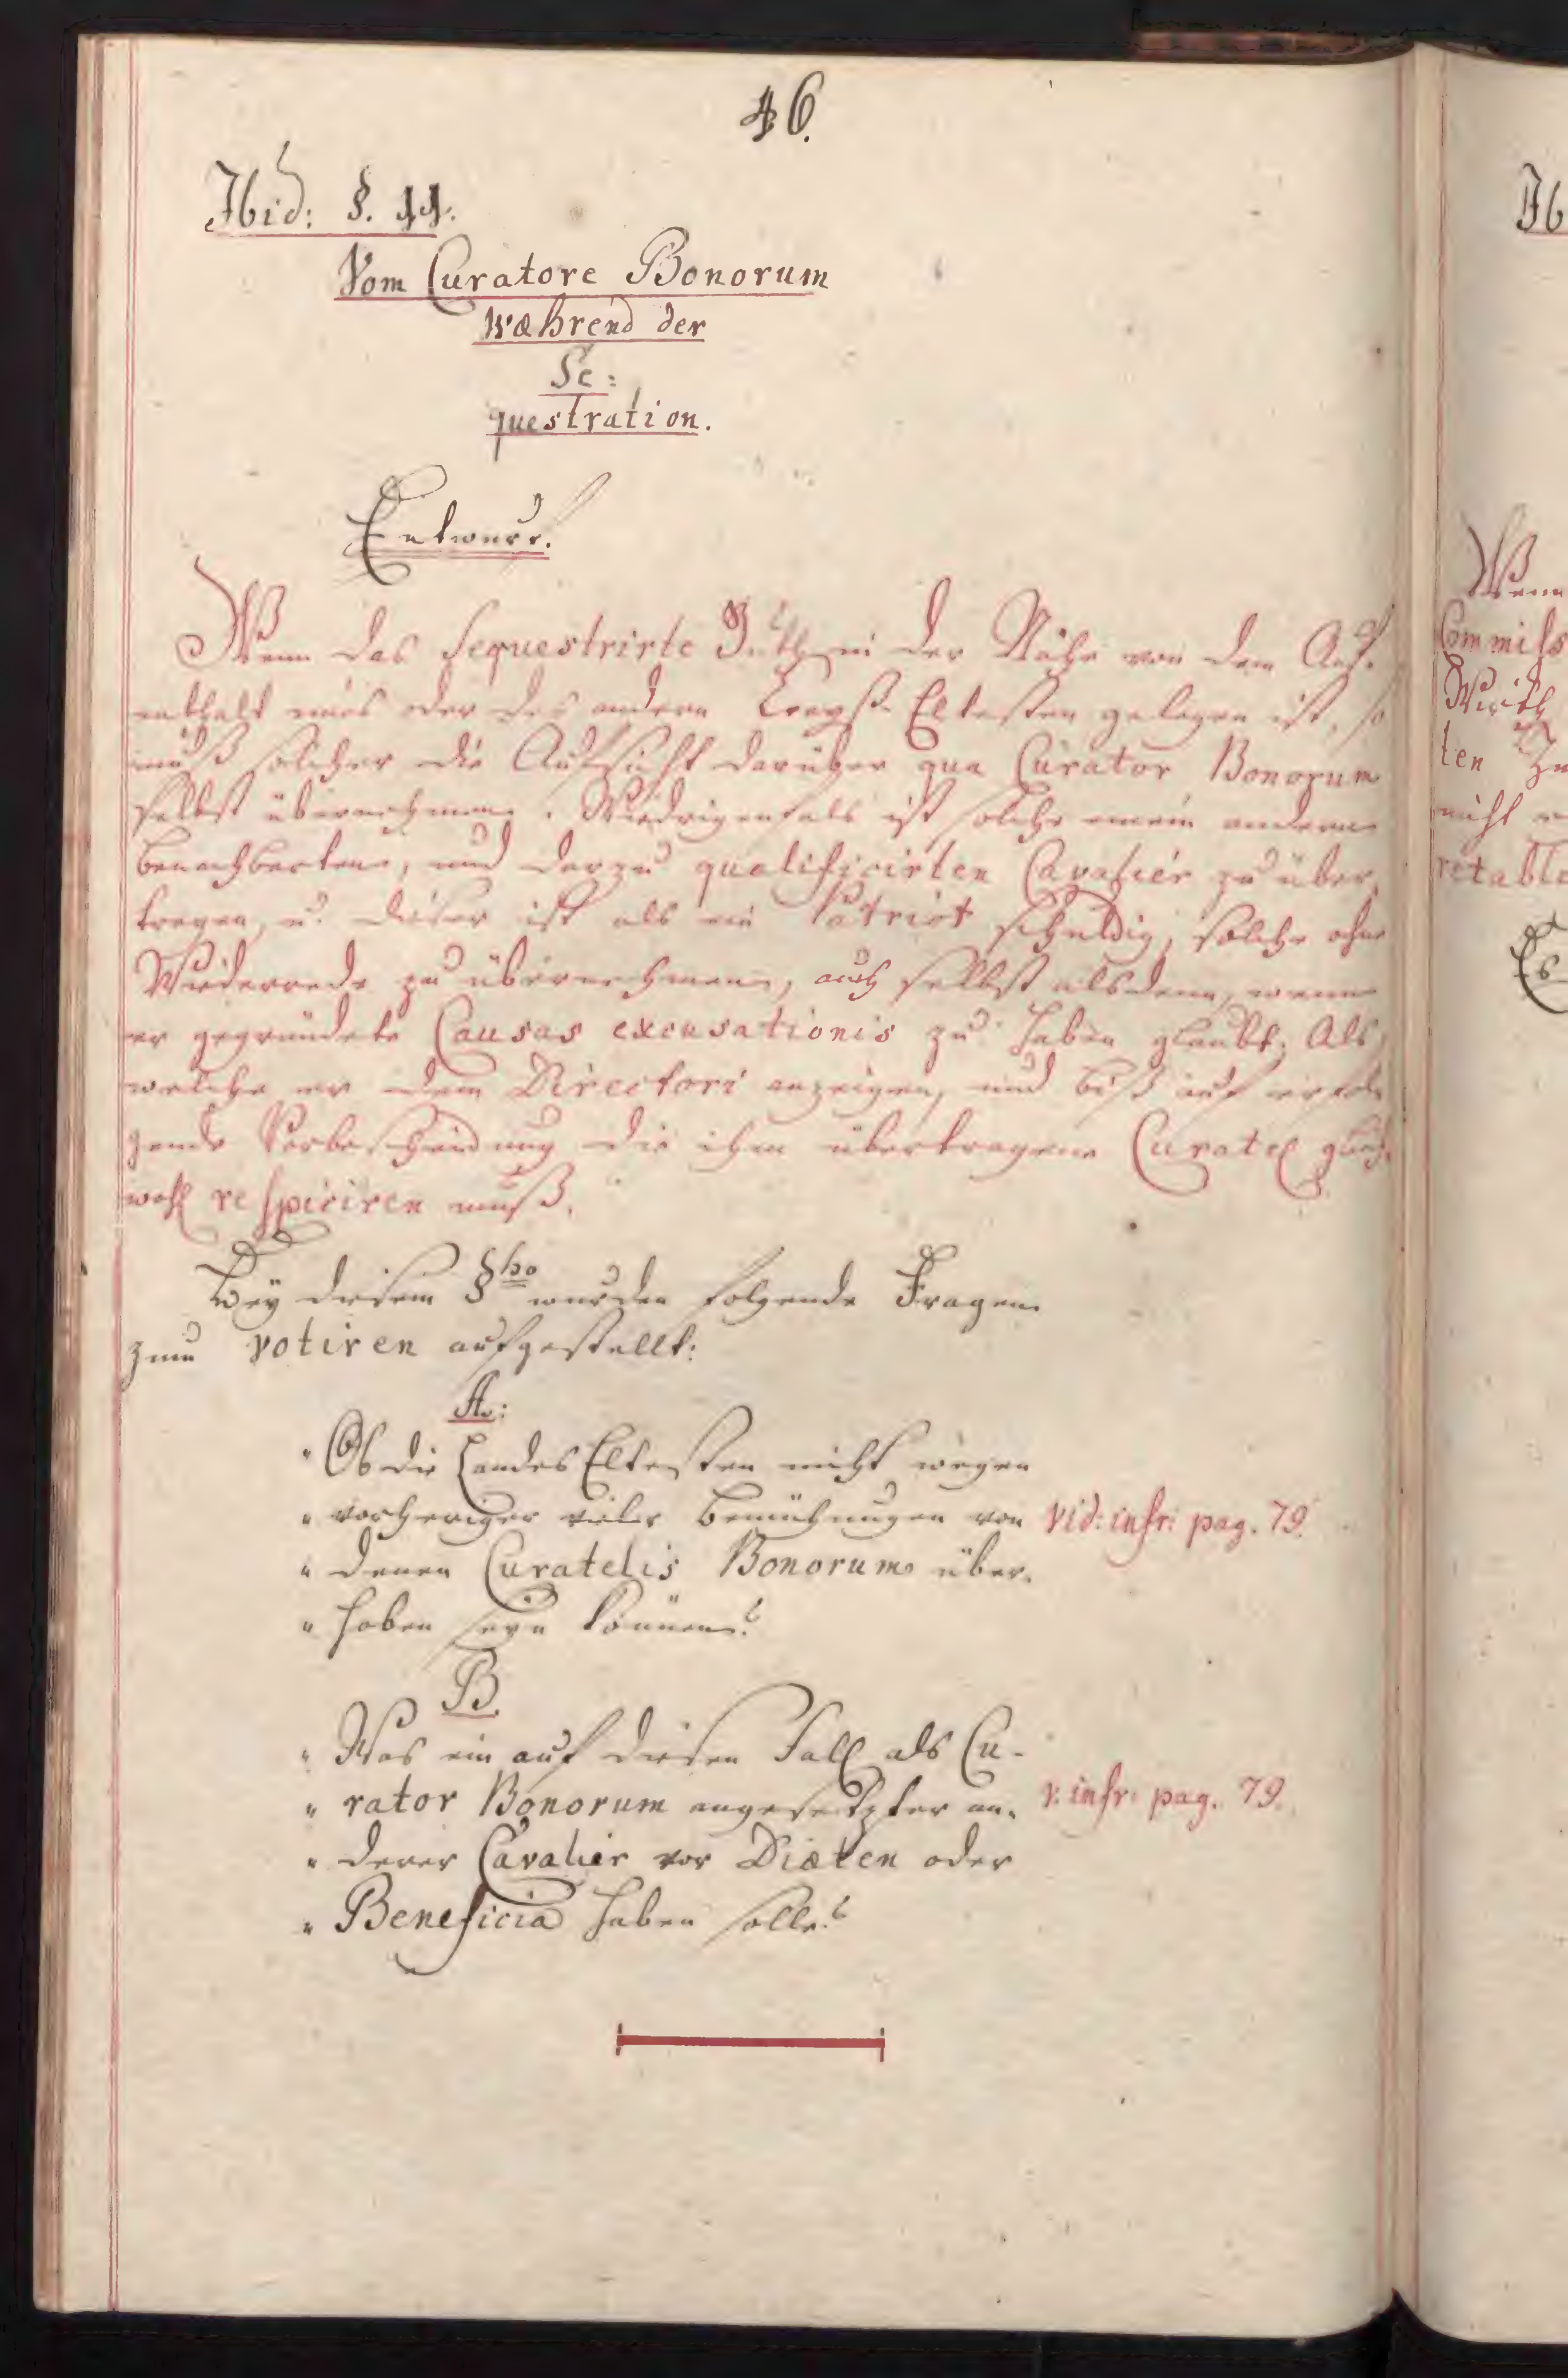 46.
Ibid: §. 11.
Vom Curatore Bonorum
während der
Se:
questration.
Entwurf.
Wenn das Sequestrirte Guth in der Nähe von dem Auf-
enthalt eines oder des andern Creyß Eltesten gelegen ist, so
muß solcher die Aufsicht darüber qua Curator Bonorum
selbst übernehmen. Wiedrigenfals ist solche einem andern
benachbarten, und darzu qualificirten Cavalier zu über-
tragen, u. dieser ist als ein Patriot schuldig, solche ohne
Wiederrede zu übernehmen, auch selbst alsdenn, wenn
er gegründete Causas excusationis zu haben glaubt; Als
welche er dem Directori anzeigen, und biß auf erfol-
gende Verbescheidung die ihm übertragene Curatel gleich-
wohl respiciren muß.
Bey diesem §pho wurden folgende Fragen
zum votiren aufgestellt:
A:
" Ob die Landes Eltesten nicht wegen
" vorheriger vieler Bemühungen von
vid: infr: pag. 79.
" denen Curatelis Bonorum über-
" hoben seyn können?
B.
" Was ein auf diesen Fall als Cu-
" rator Bonorum angesetzter an-
v. infr: pag. 79.
" derer Cavalier vor Diæten oder
" Beneficia haben solle?
Ib
Wenn
Commiss
Wirth
ten
nicht
retable
Es